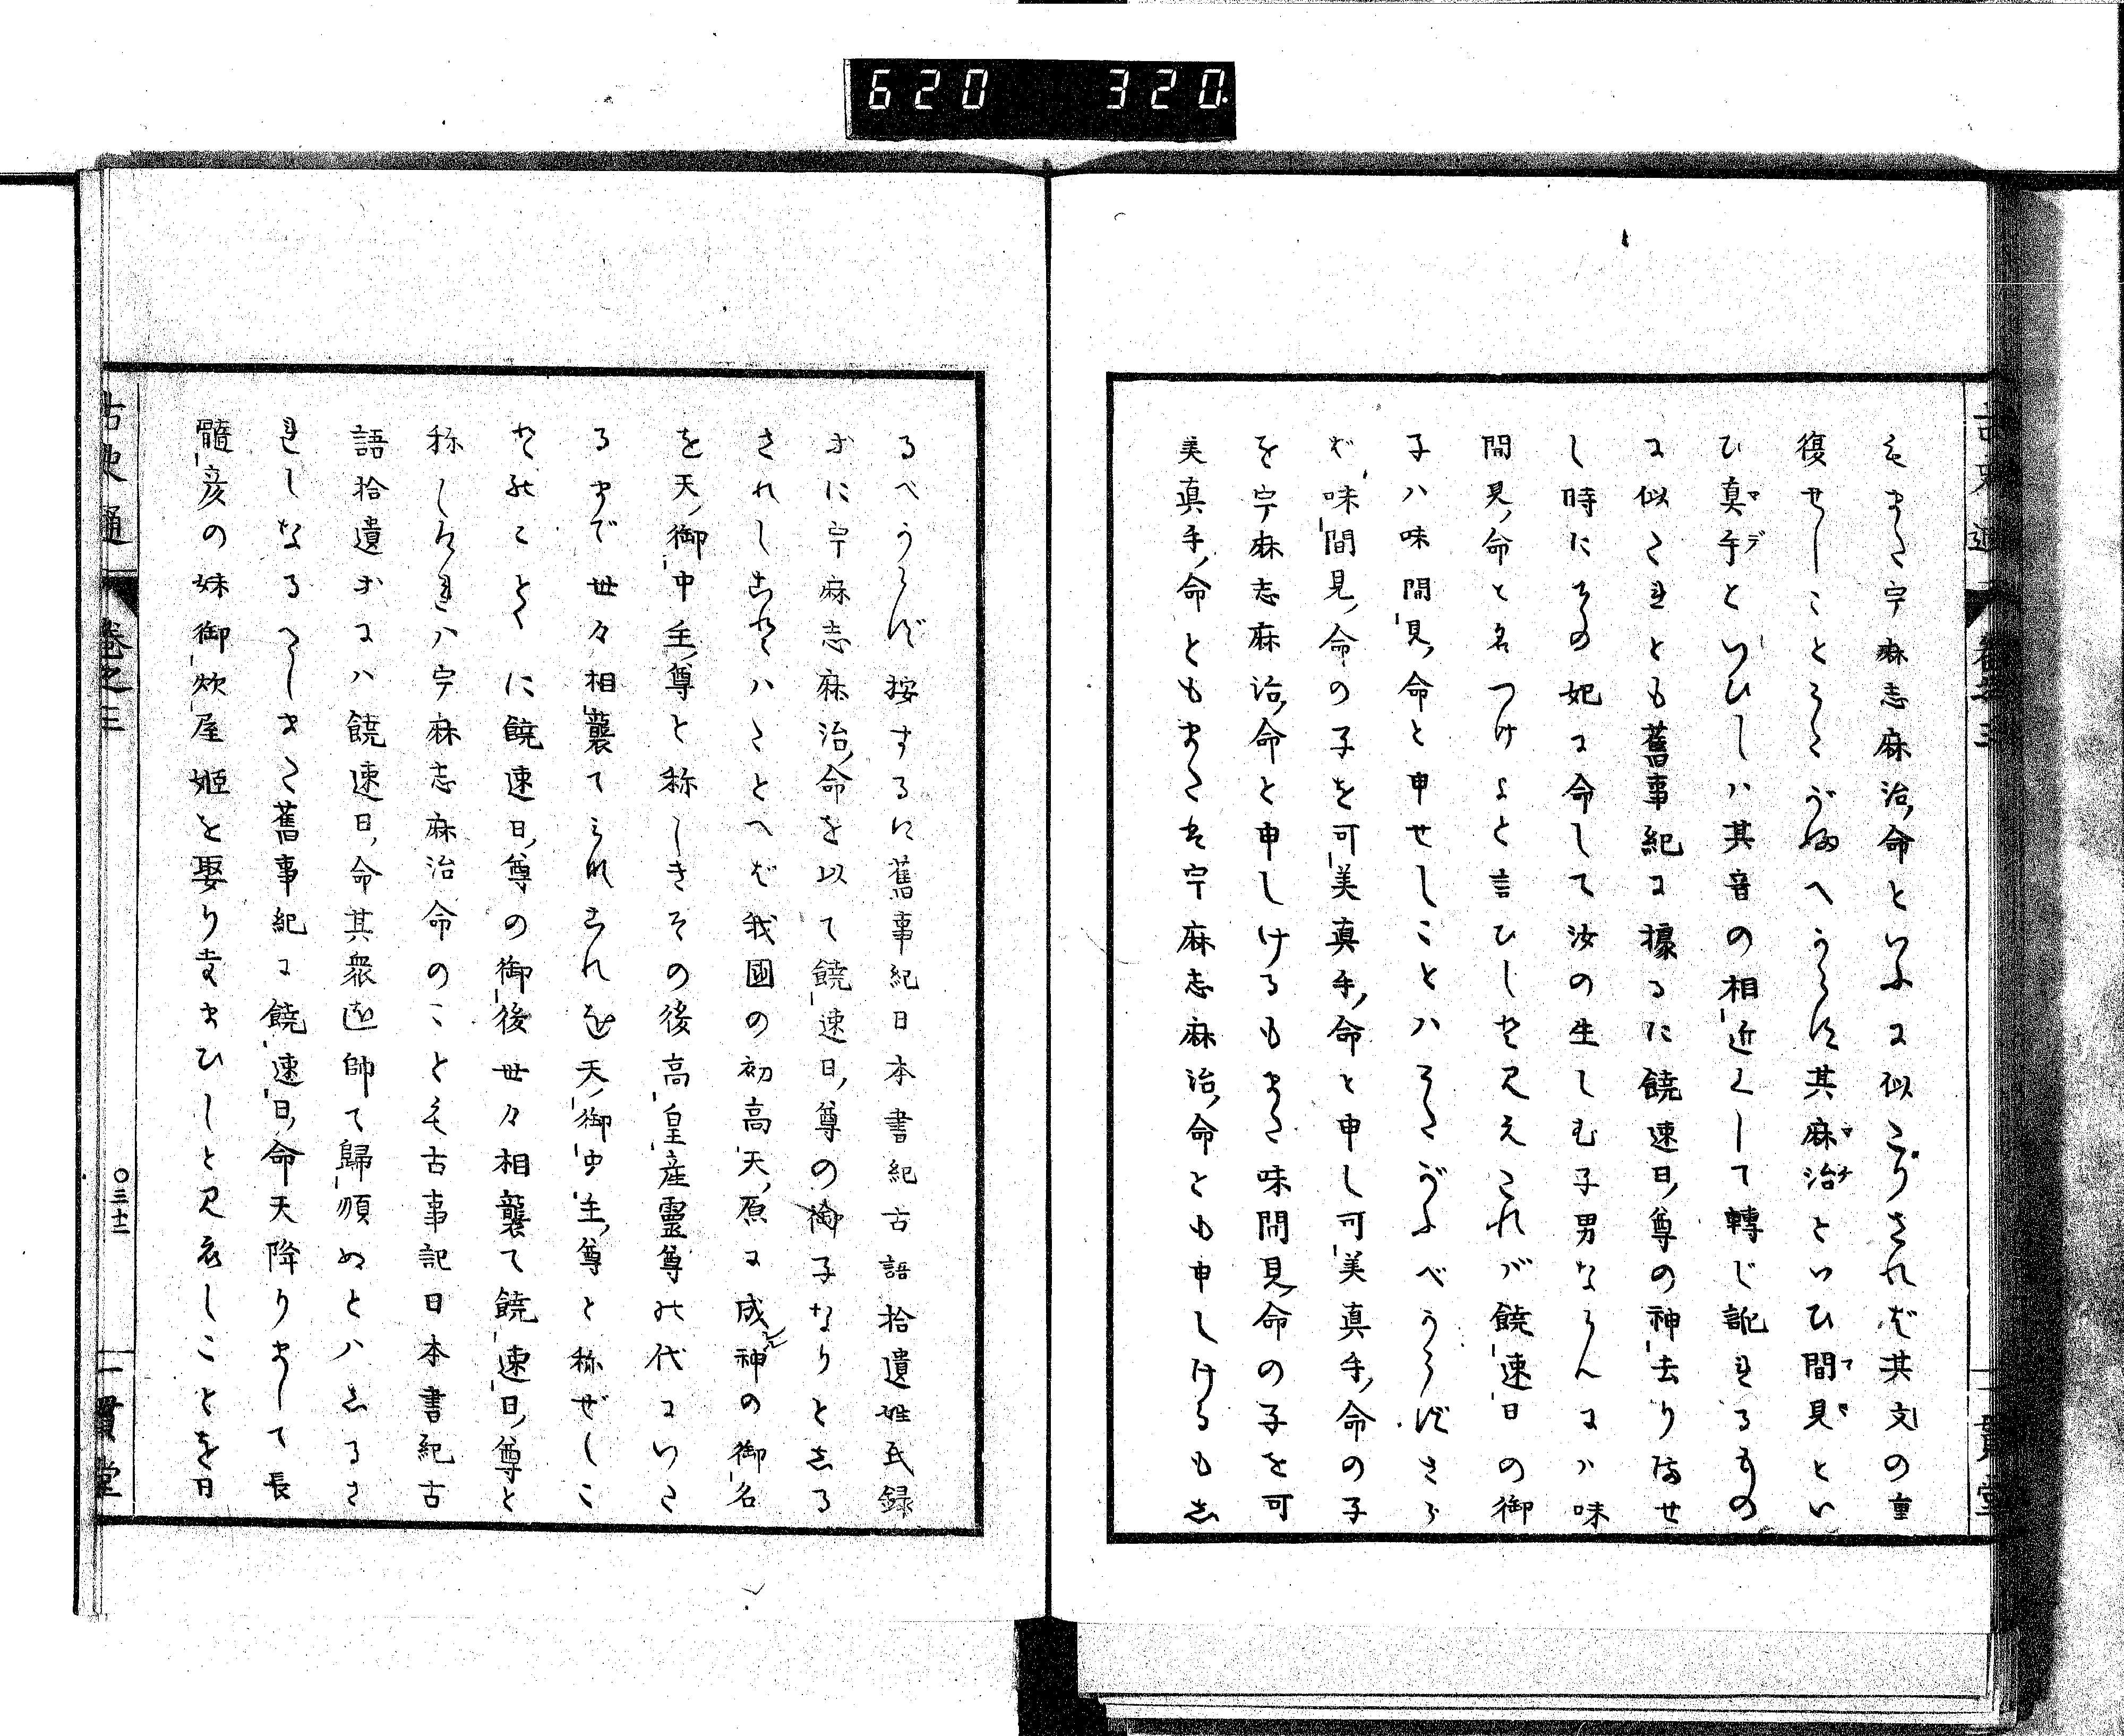 620 320.
古史通 卷之三 一貫堂
もまた宇麻志麻治命といふに似たりされば其文の重
復せしこととうたがふへからず其麻治といひ間見とい
ひ真手といひしハ其音の相近くして轉じ訛れるもの
に似たれとも舊事紀に據るに饒速日尊の神去りませ
し時にその妃に命して汝の生しむ子男ならんにハ味
間見命と名つけよと言ひしと見えこれバ饒速日の御
子ハ味間見命と申せしことハうたがふべからずさら
ば味間見命の子を可美真手命と申し可美真手命の子
を宇麻志麻治命と申しけるもまた味間見命の子を可
美真手命ともまたは宇麻志麻治命とも申しけるもし
るべからず按するに舊事紀日本書紀古語拾遺姓氏録
等に宇麻志麻治命を以て饒速日尊の御子なりとしる
されしあやハたとへば我國の初高天原に成神の御名
を天御中主尊と称しきその後高皇産霊尊の代にいた
るまで世々相襲てられこれを天御中主尊と称ぜしこ
とのことくに饒速日尊の御後世々相襲て饒速日尊と
称しけれハ宇麻志麻治命のことも古事記日本書紀古
語拾遺等にハ饒速日命其衆を帥て歸順ぬとハしるさ
れしなるへしまた舊事紀に饒速日命天降りまして長
髓彦の妹御炊屋姬を娶りまさひしと見えしことを日
古史通 卷之三 〇三十二 一貫堂